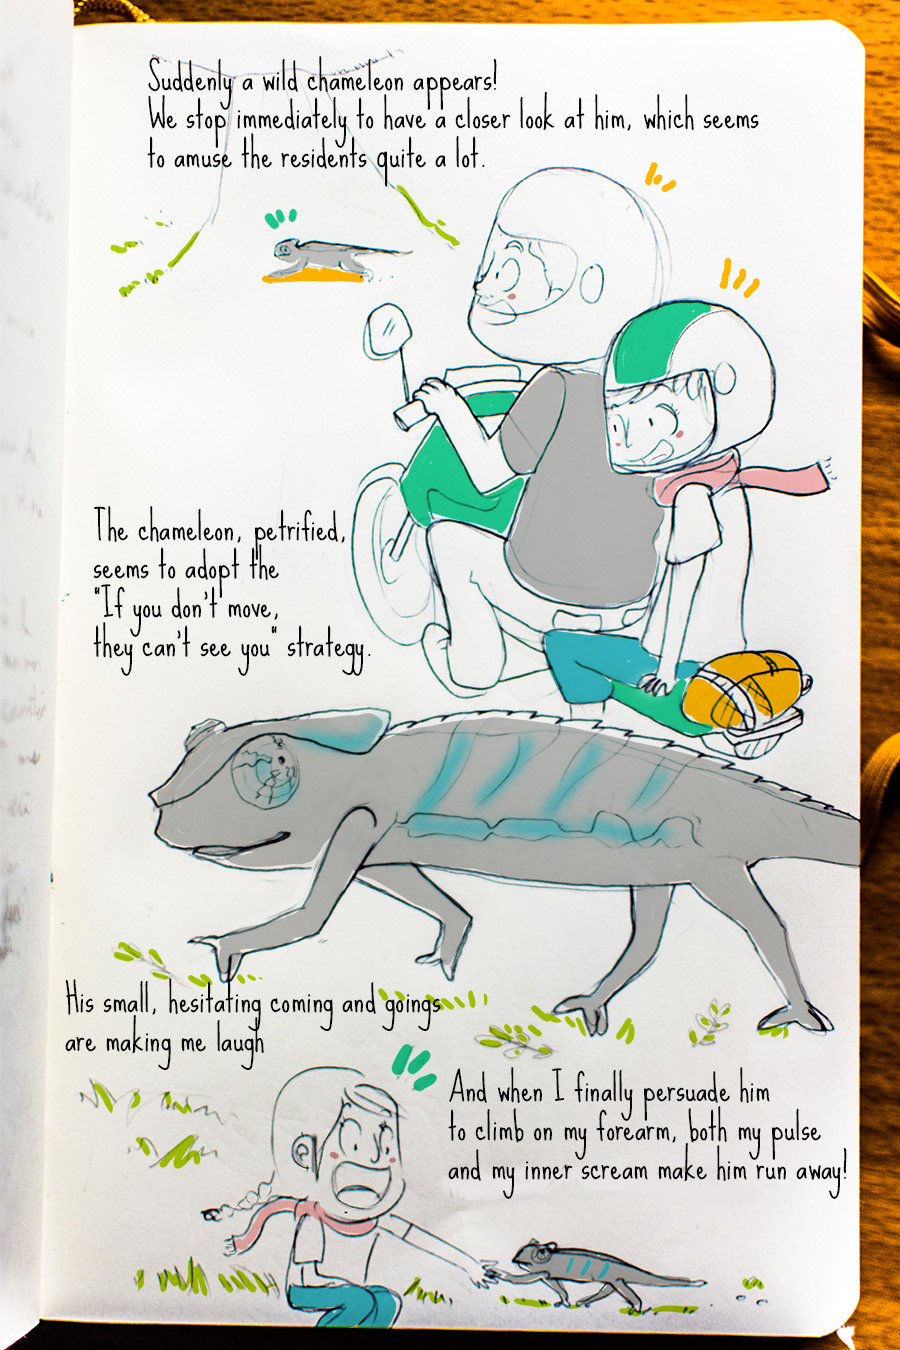 Suddenly a wild chameleon appears!
We stop immediately to have a closer look at him, which seems
to amuse the residents quite a lot.
The chameleon, petrified,
seems to adopt the
"If you don't move,
they can't see you" strategy.
His small, hesitating coming and goings
are making me laugh
And when I finally persuade him
to climb on my forearm, both my pulse
and my inner scream make him run away!